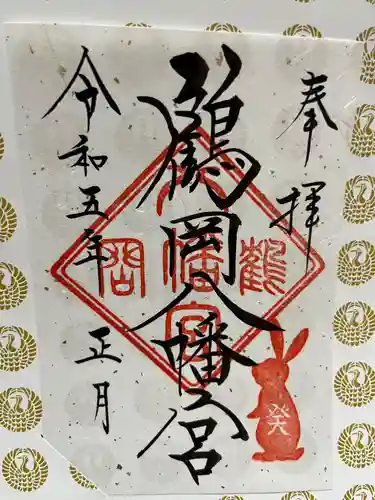 奉拝
鶴岡八幡宮
令和五年 正月
鶴
岡
八幡宮
癸